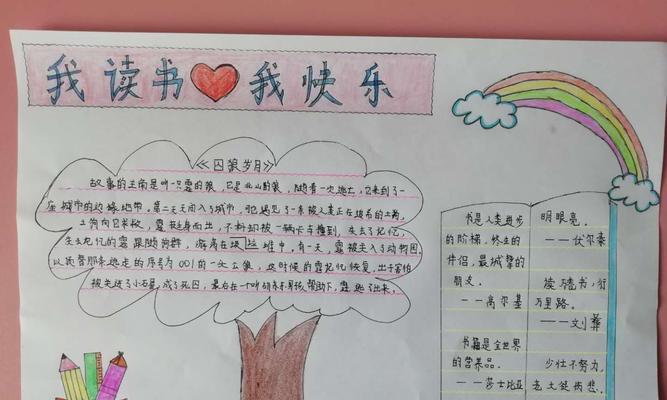 我读书我快乐
《囚狼岁月》
故事的主角是叫一只霞的狼，它是北山的狼，随着一次逃亡，它来到了一
座城市的边缘地带。第二天天闯入了城市，它遇见了一条被人类正在追杀的土狗，
土狗向它求救，霞挺身而出，不料却被一辆卡车撞到，失去了记忆，
失去记忆的霞跟随狗群，游离在垃圾堆中。有一天，霞被关入动物园，
以代替那条逃走的序号为001的一头公狼，这时候的霞记忆恢复，出于害怕
被关进了小石屋，成了死囚，最后在一个叫的男孩帮助下，霞逃了出来。
书是人类进步
的阶梯，终生的
伴侣，最诚挚的
朋友。
——高尔基
书籍是全世界
的营养品。
——莎士比亚
明眼亮。
——伏尔泰
读万卷书，行
万里路。
——刘彝
少壮不努力，
老大徒伤悲。